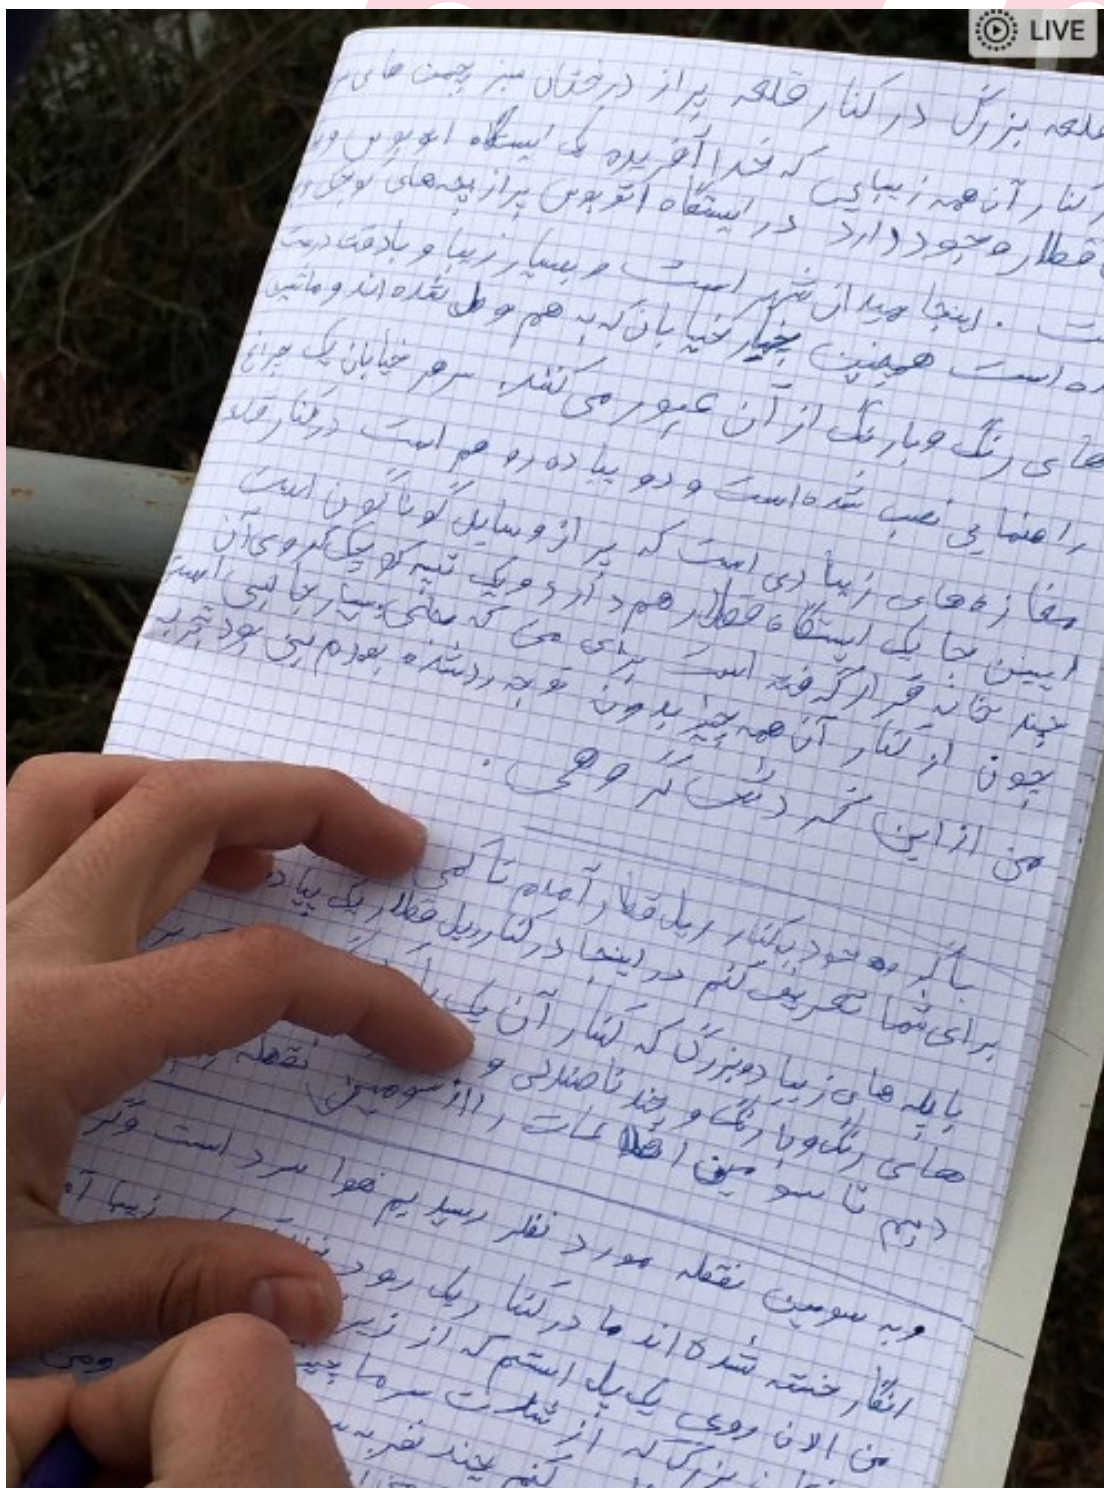 LIVE
قلعه بزرگ در کنار قلعه پراز درختان سبز چمن های
کنار آن همه زیبایی که خدا آفریده یک ایستگاه اتوبوس
قطار وجود دارد در ایستگاه اتوبوس پراز بچه های
است . اینجا میدان شهر است و بسیار زیبا و بادقت درست
ده است همچنین چهار خیابان که به هم وصل شده اند و ماشین
های رنگ وبارنگ از آن عبور می کنند. سر هر خیابان یک چراغ
راهنمایی نصب شده است و دو پیاده رو هم است در کنار قلعه
مغازه های زیبا دی است که پر از وسایل گوناگون است
ایبنن جا یک ایستگاه قطار هم دارد و یک تپه کوچک که روی آن
چند خانه قرار گرفته است برای من که بسیار جالب است
چون از کنار آن همه چیز بدون توجه رد شده بودم بود تجربه
من از این گردش گروهی .
با گروه خود به کنار ریل قطار آمدم تا کمی
برای شما تعریف کنم در اینجا در کنار ریل قطار یک
با پله های زیبا و بزرگ که کنار آن یک
های رنگ وبارنگ و چند تا صندلی و
دهیم تا سو مین اطلا عات را از سومین نقطه
وبه سومین نقطه مورد نظر رسیدیم هوا سرد است
انگار خسته شده اند ما در کنا ر یک رود زیبا
من الان روی یک پل استم که از زیر
بزرگ که از شدت سرما
کنم چند نفر به